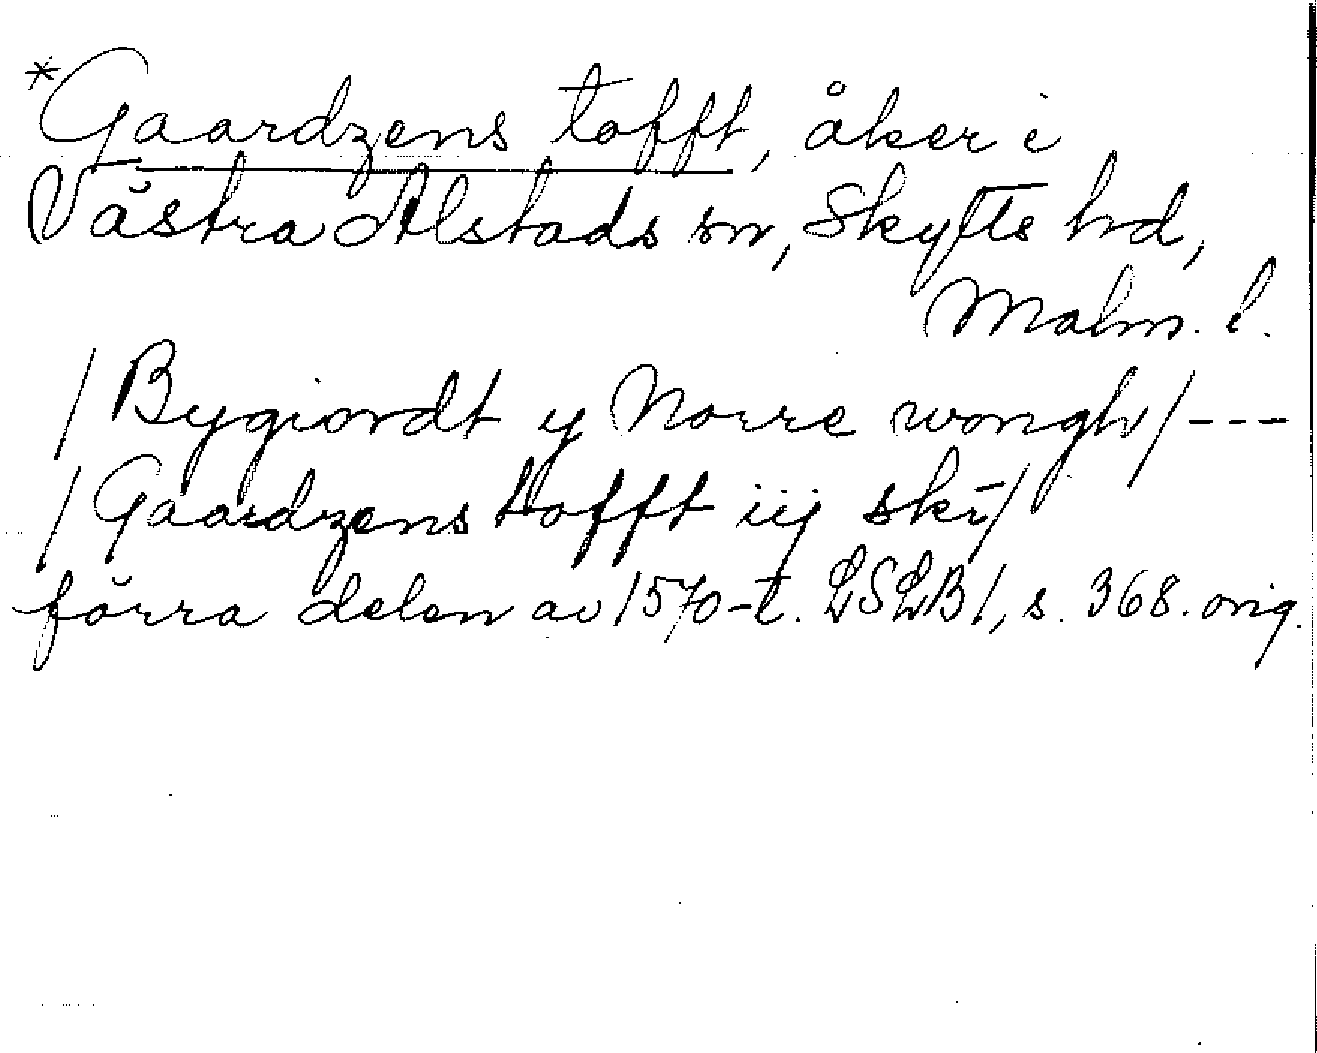 *Gaardzens tofft, åker i
Västra Alstads sn, Skytts hd,
Malm. l.
/Bygiordt y Norre wongh/---
/Gaardzens tofft iij ski/
förra delen av 1570-t. LSLB1, s. 368. orig.